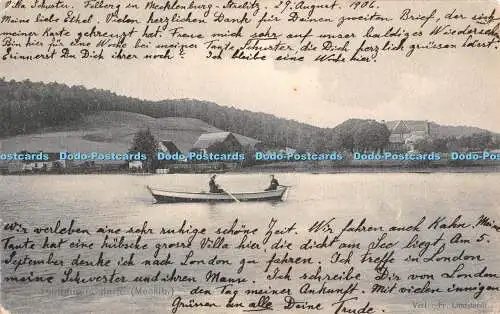 Villa Schuster, Feldberg in Mecklenburg-Strelitz, 29. August. 1906.
Meine liebe Ethel. Vielen herzlichen Dank für Deinen zweiten Brief, der sich mit
meiner Karte gekreuzt hat. Freue mich sehr auf unser baldiges Wiedersehen
Bin hier für eine Woche bei meiner Tante Schuster, die Dich herzlich grüssen lässt.
Erinnerst Du Dich ihrer noch? Ich bleibe eine Woche hier.
www.postcardfinder.co.uk
Wir verleben eine sehr ruhige schöne Zeit. Wir fahren auch Kahn. Meine
Tante hat eine hübsche grosse Villa hier die dicht am See liegt. Am 5.
September denke ich nach London zu fahren. Ich treffe in London
meine Schwester und ihren Mann. Ich schreibe Dir von London
(Mecklbg.) den Tag meiner Ankunft. Mit vielen innigen
Grüssen an alle Deine Trude.
Verl. Fr.